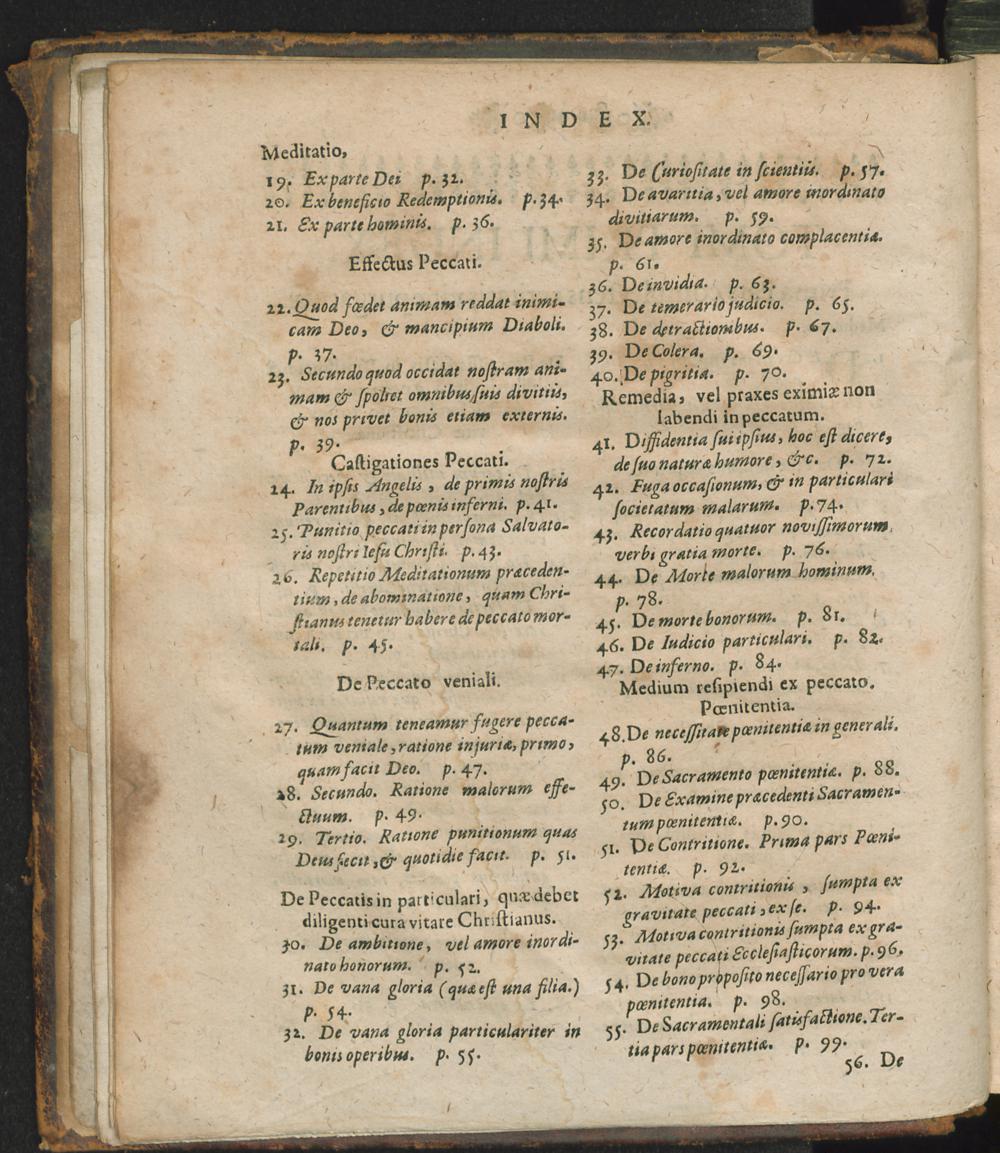 INDEX.
Meditatio,
19. Ex parte Dei p. 32.
20. Ex beneficio Redemptionis. p. 34.
21. Ex parte hominis. p. 36.
Effectus Peccati.
22. Quod fœdet animam reddat inimi-
cam Deo, & mancipium Diaboli.
p. 37.
23. Secundo quod occidat noſtram ani-
mam & ſpoliet omnibus ſuis divitiis,
& nos privet bonis etiam externis.
p. 39.
Caſtigationes Peccati.
24. In ipſis Angelis, de primis noſtris
Parentibus, de pœnis inferni. p. 41.
25. Punitio peccati in perſona Salvato-
ris noſtri Ieſu Chriſti. p. 43.
26. Repetitio Meditationum præceden-
tium, de abominatione, quam Chri-
ſtianus tenetur habere de peccato mor-
tali. p. 45.
De Peccato veniali.
27. Quantum teneamur fugere pecca-
tum veniale, ratione injuriæ, primo,
quam facit Deo. p. 47.
28. Secundo. Ratione malorum effe-
ctuum. p. 49.
29. Tertio. Ratione punitionum quas
Deus fecit, & quotidie facit. p. 51.
De Peccatis in particulari, quæ debet
diligenti cura vitare Chriſtianus.
30. De ambitione, vel amore inordi-
nato honorum. p. 52.
31. De vana gloria (quæ eſt una filia.)
p. 54.
32. De vana gloria particulariter in
bonis operibus. p. 55.
33. De Curioſitate in ſcientiis. p. 57.
34. De avaritia, vel amore inordinato
divitiarum. p. 59.
35. De amore inordinato complacentiæ.
p. 61.
36. De invidia. p. 63.
37. De temerario judicio. p. 65.
38. De detractionibus. p. 67.
39. De Colera. p. 69.
40. De pigritia. p. 70.
Remedia, vel praxes eximiæ non
labendi in peccatum.
41. Diffidentia ſui ipſius, hoc eſt dicere,
de ſuo naturæ humore, &c. p. 72.
42. Fuga occaſionum, & in particulari
ſocietatum malarum. p. 74.
43. Recordatio quatuor noviſſimorum,
verbi gratia morte. p. 76.
44. De Morte malorum hominum.
p. 78.
45. De morte bonorum. p. 81.
46. De Iudicio particulari. p. 82.
47. De inferno. p. 84.
Medium reſipiendi ex peccato.
Pœnitentia.
48. De neceſſitate pœnitentiæ in generali.
p. 86.
49. De Sacramento pœnitentiæ. p. 88.
50. De Examine præcedenti Sacramen-
tum pœnitentiæ. p. 90.
51. De Contritione. Prima pars Pœni-
tentiæ. p. 92.
52. Motiva contritionis, ſumpta ex
gravitate peccati, ex ſe. p. 94.
53. Motiva contritionis ſumpta ex gra-
vitate peccati Eccleſiaſticorum. p. 96.
54. De bono propoſito neceſſario pro vera
pœnitentia. p. 98.
55. De Sacramentali ſatisfactione. Ter-
tia pars pœnitentiæ. p. 99.
56. De